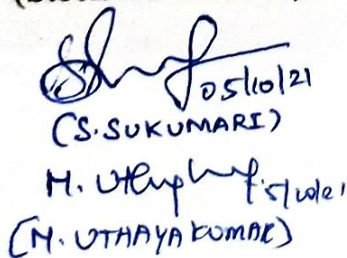 05/10/21
(S. SUKUMARI)
M. 5/10/21
(M. UTHAYA KUMAR)